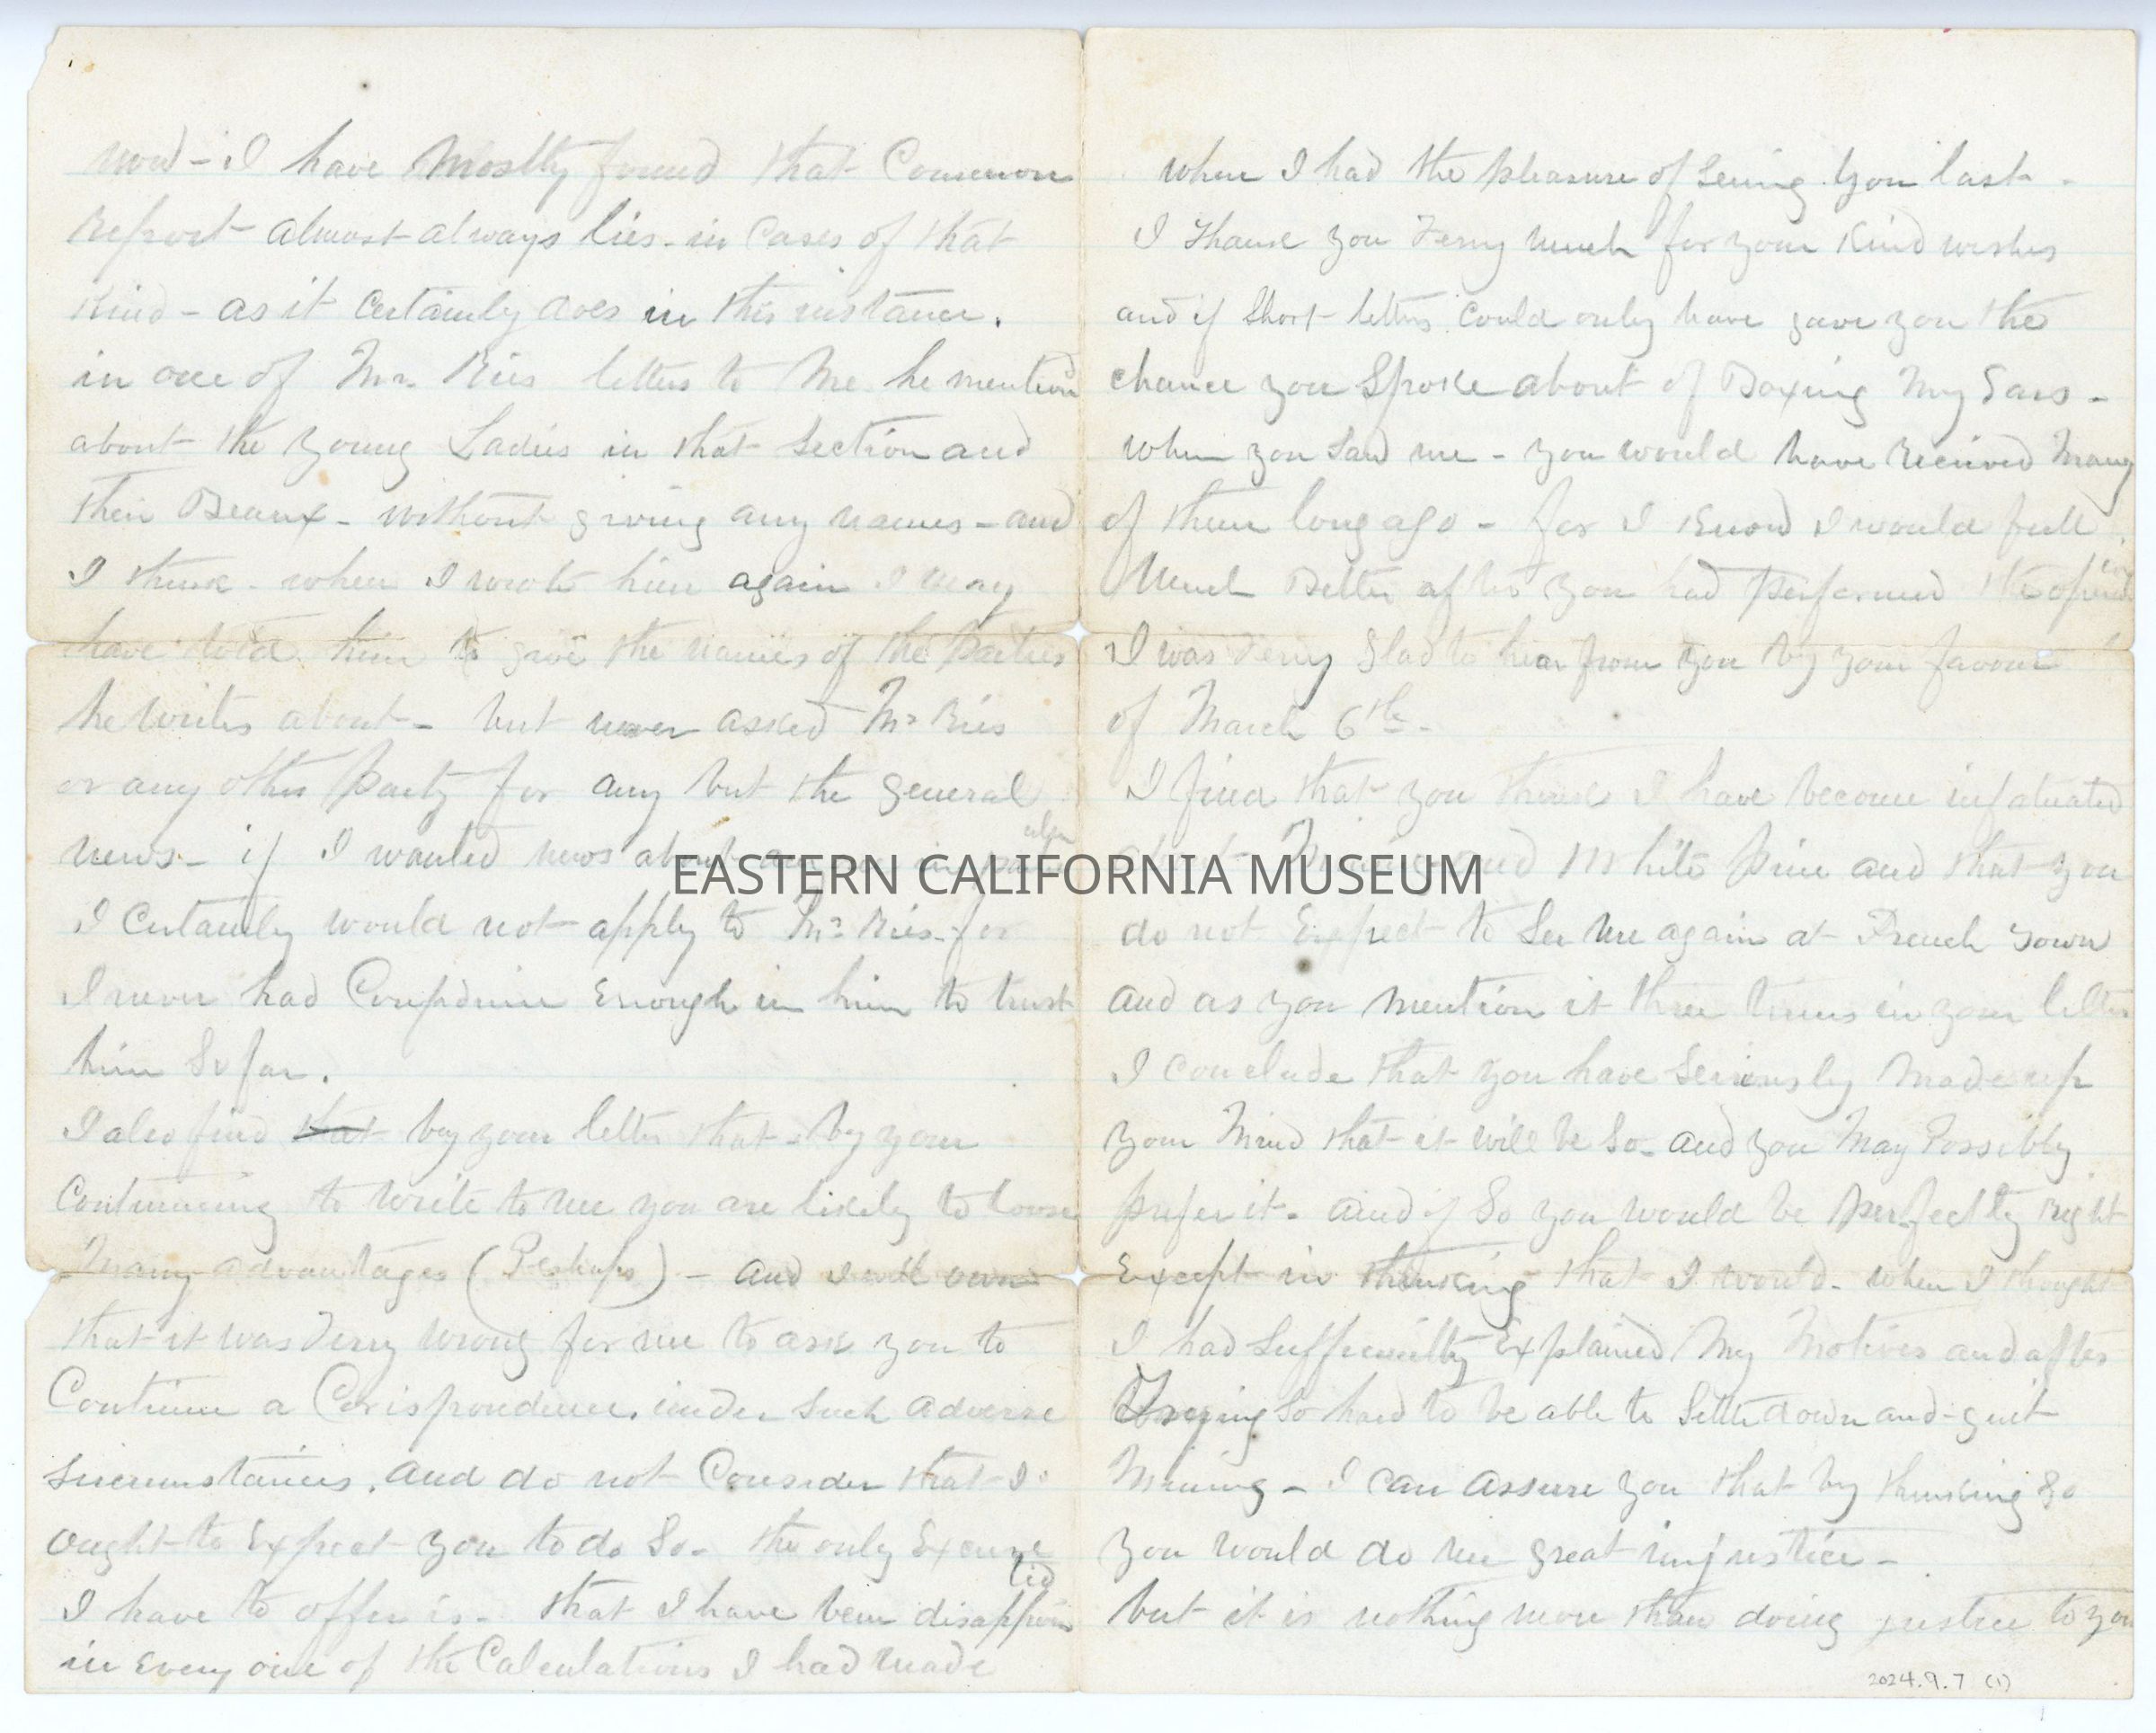 word - I have Mostly found that Common
Report almost always lies - in Cases of that
Kind - as it Certainly does in this instance.
in one of Mr. Ries letters to Me he mentiond
about the young Ladies in that Section and
their Beaux - without giving any names - and
I think - when I wrote him again I may
have told him to give the names of the Parties
he writes about - but never asked Mr Ries
or any other Party for any but the general
news - if I wanted news about in particular
I Certainly would not apply to Mr Ries - for
I never had Confidence Enough in him to trust
him So far.
I also find that by your letter that - by your
Continuing to write to me you are likely to loose
Many advantages (Perhaps) - and I will own
that it was Very wrong for me to ask you to
Continue a Corispondence. under Such adverse
Sircumstances. and do not Consider that I
ought to Expect you to do So - the only Excuse
I have to offer is - that I have been disappointed
in Every one of the Calculations I had made
when I had the pleasure of Seeing you last -
I Thank you Very much for your Kind wishes
and if Short letters Could only have gave you the
chance you Spoke about of Boxing My Ears -
when you Saw me - you would have Received Many
of them long ago - for I Know I would feell
Much Better after you had performed the opperation
I was Very Glad to hear from you by your favour
of March 6th -
I find that you think I have become infatuated
and White Pine and that you
do not Expect to See me again at French Town
and as you mention it three times in your letter
I conclude that you have Seriously Made up
your Mind that it will be So - and you May Possibly
prefer it - and if So you would be perfectly right
Except in thinking that I would - when I thought
I had Suffeciently Explained My Motives and after
Trying So hard to be able to Settle down and - quit
Mining - I can assure you that by thinking So
you would do me great injustice -
but it is nothing more than doing justice to you
2024.9.7 (1)
EASTERN CALIFORNIA MUSEUM